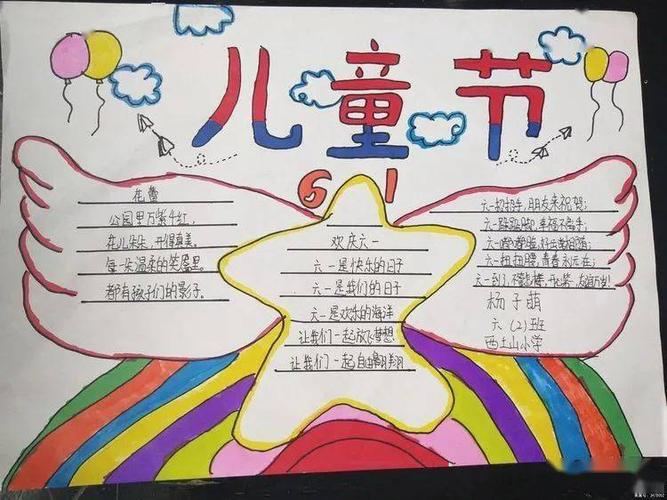 儿童节
6 1
花蕾
公园里万紫千红，
花儿朵朵，开得真美。
每一朵温柔的笑靥里
都有孩子们的影子。
欢庆六一
六一是快乐的日子
六一是我们的日子
六一是欢乐的海洋
让我们一起放飞梦想
让我们一起自由翱翔
六一招招手，朋友来祝贺；
六一跺跺脚，幸福
六一
六一扭扭腰，青春永远在；
六一到了，
杨子萌
六（2）班
西土山小学